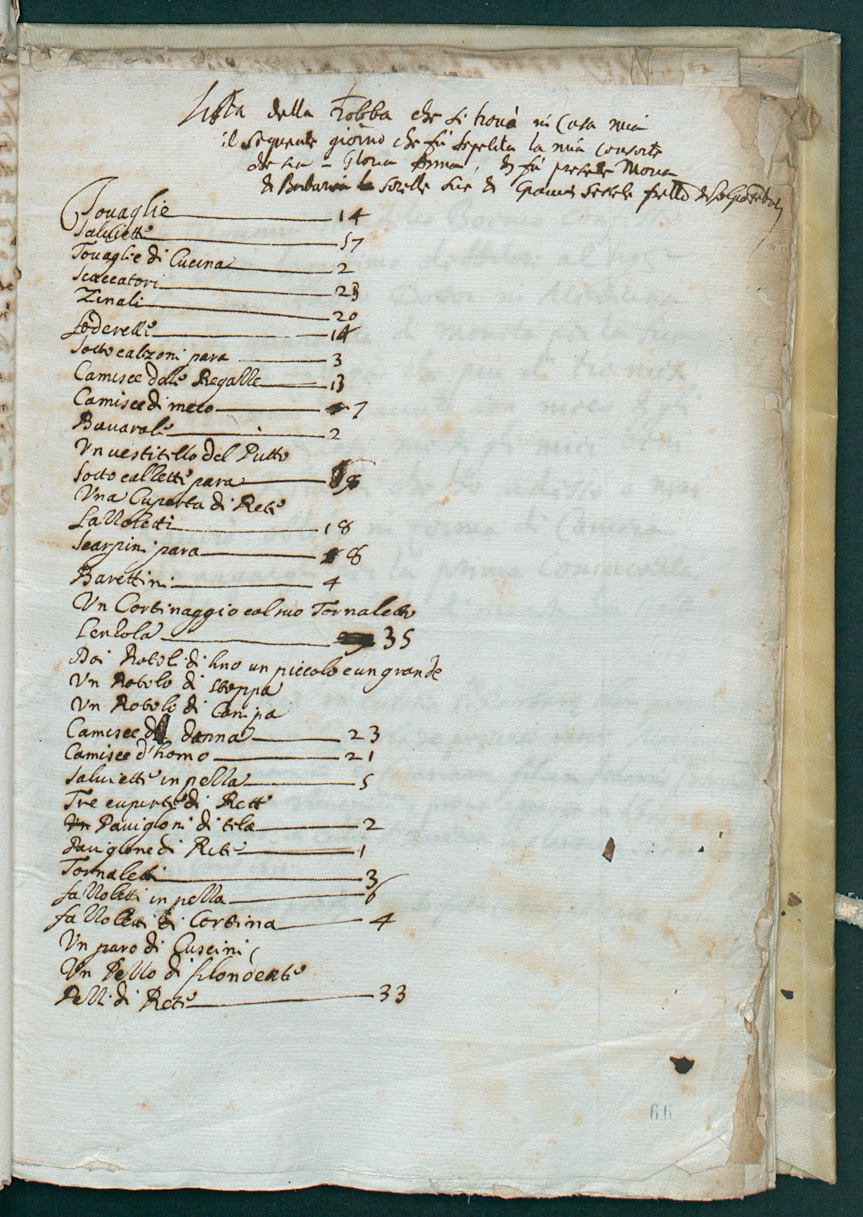 Lista della Robba che si trova in Casa mia
il sequente giorno che fù sepelita la mia consorte
che sia in Gloria
di Barbaria sorelle
Tovaglie 14
Salviette 57
Tovaglie di Cucina 2
Sciaccatori 23
Zinali 20
Foderelle 14
Sotto calzoni para 3
Camisce delle Regalle 13
Camisce di meto 7
Bavarole 2
Un vestitello del Putto
Sotto callette para 8
Una Cuperta di Rete
Fazzoletti 18
Scarpini para 8
Barettini 4
Un Cortinaggio col suo Tornaletto
Lenzola 35
Doi Rotoli di lino un piccolo e un grande
Un Rotolo di stoppa
Un Rotolo di Canipa
Camisce di donna 23
Camisce d'homo 21
Salviette in pezza 5
Tre cuperte di Rete
Paviglioni di tela 2
Paviglione di Rete 1
Tornaletti 3
Fazzoletti in pezza 6
fazzoletti di Cortina 4
Un paro di Cuscini
Un Pezzo di filondente
Pezzi di Rete 33
66